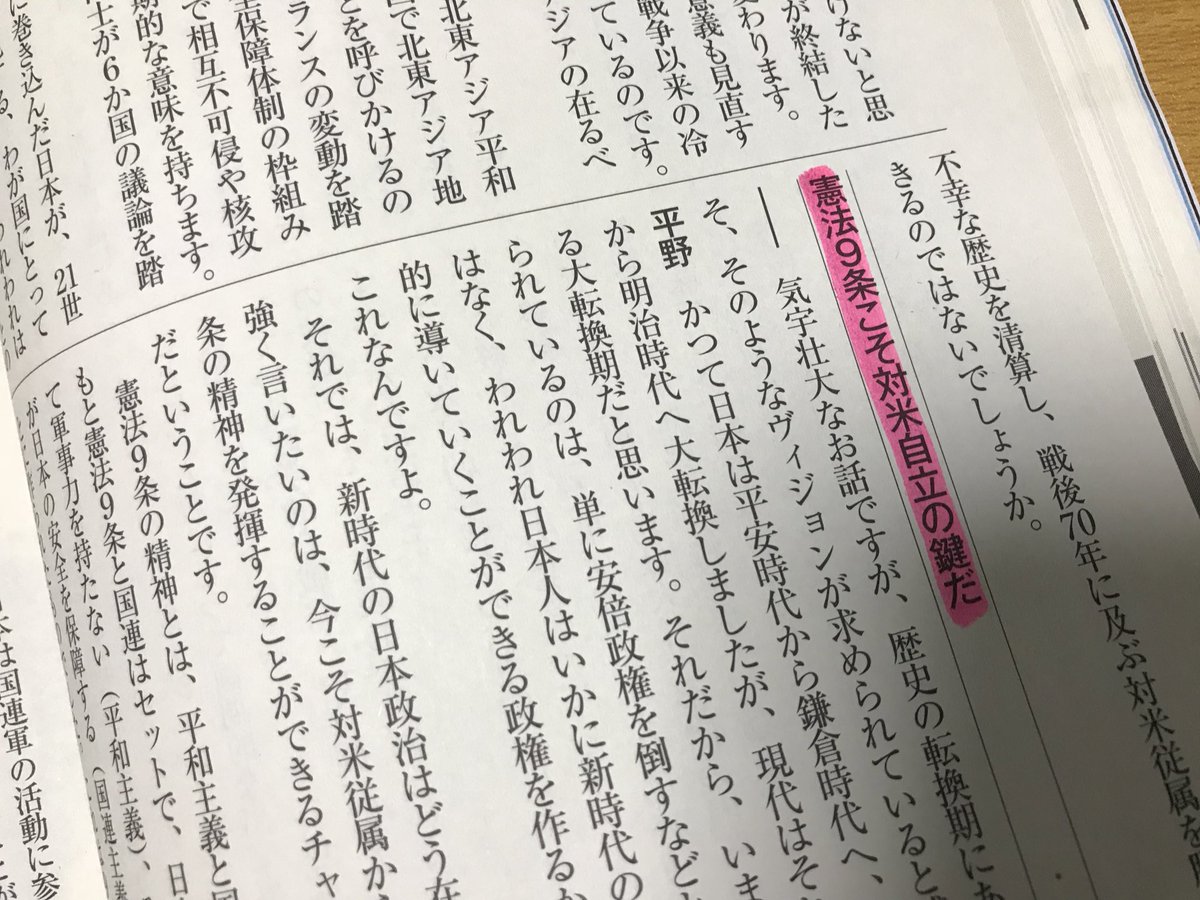 けないと思
が終結した
わります。
意義も見直す
戦争以来の冷
ているのです。
ジアの在るべ
北東アジア平和
で北東アジア地
とを呼びかけるの
ランスの変動を踏
保障体制の枠組み
で相互不可侵や核攻
期的な意味を持ちます。
士が6か国の議論を踏
に巻き込んだ日本が、21世
る、わが国にとって
われわれは
戦後70年に及ぶ対米従属を
不幸な歴史を清算し、
きるのではないでしょうか。
憲法9条こそ対米自立の鍵だ
――気宇壮大なお話ですが、歴史の転換期にあ
そ、そのようなヴィジョンが求められていると
平野 かつて日本は平安時代から鎌倉時代へ、
から明治時代へ大転換しましたが、現代はそ
る大転換期だと思います。それだから、いま
られているのは、単に安倍政権を倒すなど
はなく、われわれ日本人はいかに新時代の
的に導いていくことができる政権を作るか
これなんですよ。
それでは、新時代の日本政治はどう在
強く言いたいのは、今こそ対米従属か
条の精神を発揮することができるチャ
だということです。
憲法9条の精神とは、平和主義と国
もと憲法9条と国連はセットで、日
て軍事力を持たない(平和主義)、
が日本の安全を保障する(国連主義
本は国連軍の活動に参